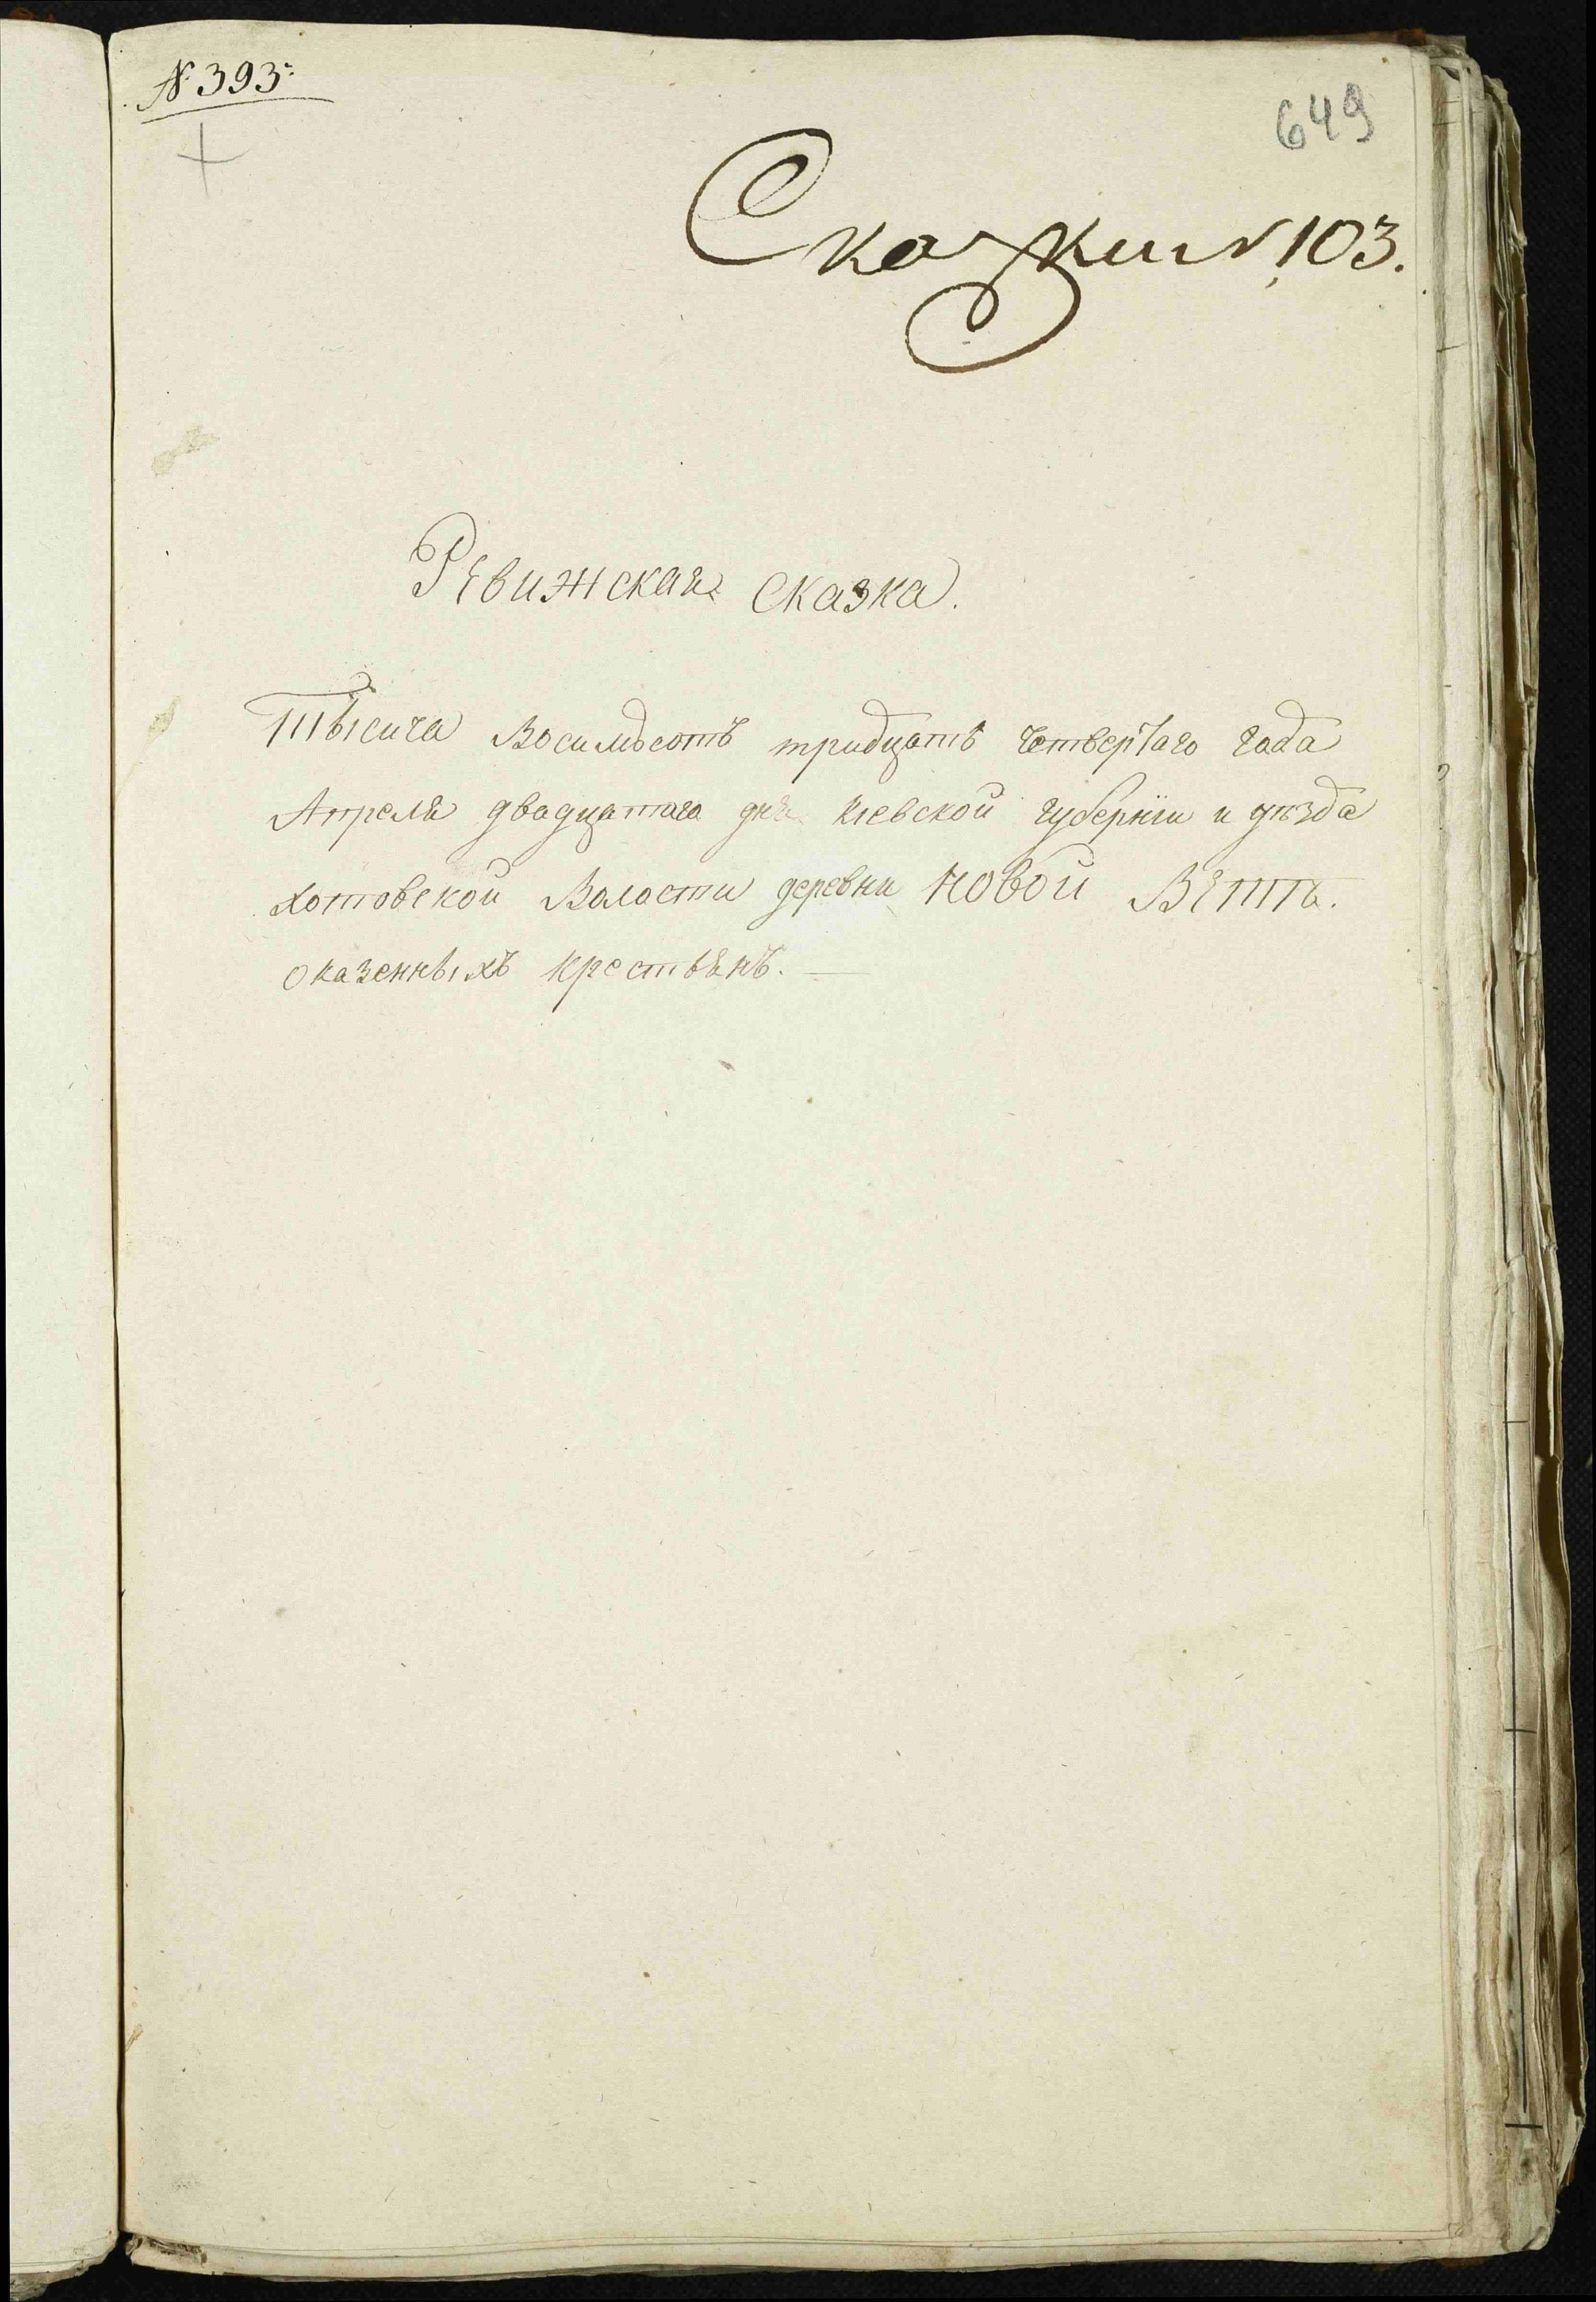 № 393:
649
Сказки №103.
Ревижская сказка.
Тысяча Восимьсотъ тридцать четвертаго года
Апреля двадцатаго дня Киевской губернïи и уѣзда
хотовской Воласти деревни Новой Вѣты.
оказенныхъ крестьянъ. —